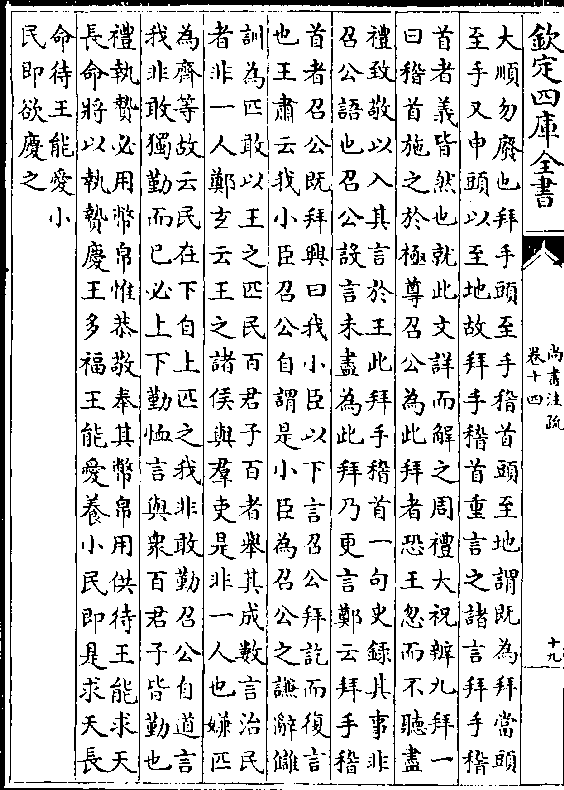 欽定四庫全書
尚書注疏
卷十四
十九
大順勿廢也拜手頭至手稽首頭至地謂既為拜當頭
至手又申頭以至地故拜手稽首重言之諸言拜手稽
首者義皆然也就此文詳而解之周禮大祝辨九拜一
曰稽首施之於極尊召公為此拜者恐王忽而不聽盡
禮致敬以入其言於王此拜手稽首一句史錄其事非
召公語也召公設言未盡為此拜乃更言鄭云拜手稽
首者召公既拜興曰我小臣以下言召公拜訖而復言
也王肅云我小臣召公自謂是小臣為召公之謙辭讎
訓為匹敵以王之匹民百君子百者舉其成數言治民
者非一人鄭玄云王之諸侯與羣吏是非一人也嫌匹
為齊等故云民在下自上匹之我非敢勤召公自道言
我非敢獨勤而已必上下勤恤言與衆百君子皆勤也
禮執贄必用幣帛惟恭敬奉其幣帛用供待王能求天
長命將以執贄慶王多福王能愛養小民即是求天長
命待王能愛小
民即欲慶之